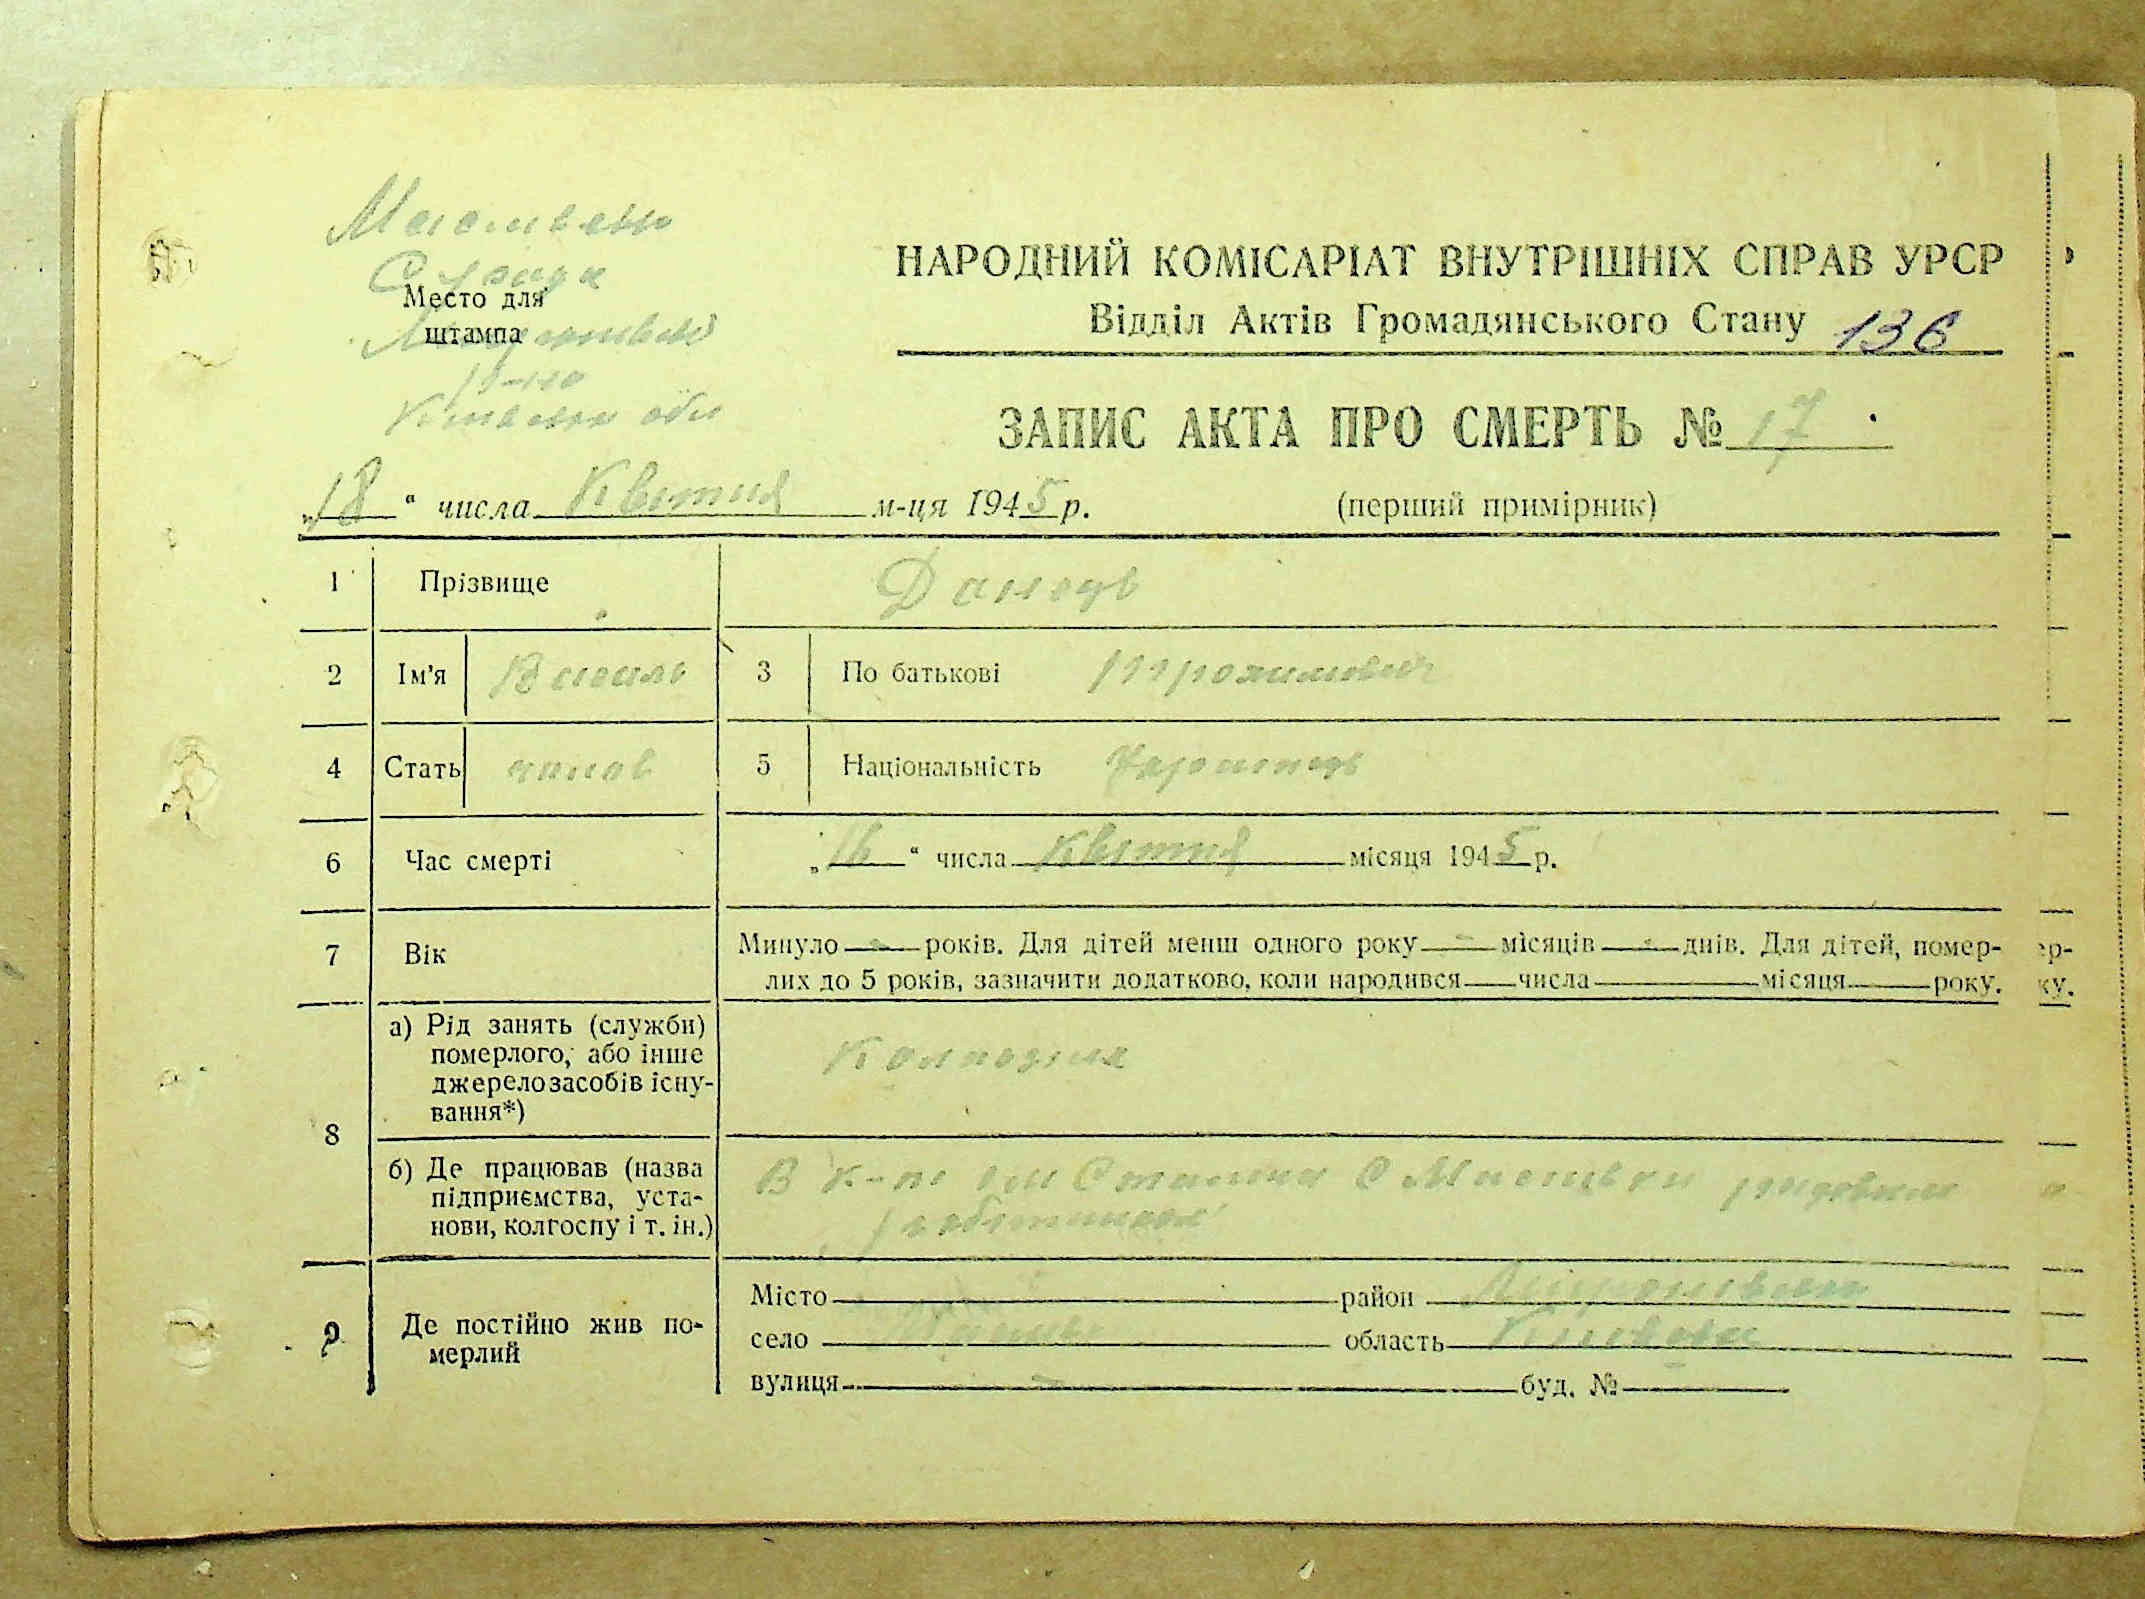 Масівськ
С/рада
Место для
штампа
р-но
Київськ обл
НАРОДНИЙ КОМІСАРІАТ ВНУТРІШНІХ СПРАВ УРСР
Відділ Актів Громадянського Стану 136
ЗАПИС АКТА ПРО СМЕРТЬ № 17
„18“ числа Квітня м-ця 1945 р.
(перший примірник)
1 Прізвище Донець
2 Ім'я Василь 3 По батькові Трохимович
4 Стать чолов 5 Національність Українець
6 Час смерті „16“ числа Квітня місяця 1945 р.
7 Вік Минуло - років. Для дітей менш одного року - місяців - днів. Для дітей, помер-
лих до 5 років, зазначити додатково, коли народився числа місяця року.
8 а) Рід занять (служби)
померлого, або інше
джерело засобів існу-
вання*)
Колгозник
б) Де працював (назва
підприємства, уста-
нови, колгоспу і т. ін.)
В к-пі ім Сталіна С рядовим
робітником
9 Де постійно жив по-
мерлий
Місто район
село область Київська
вулиця - буд. №